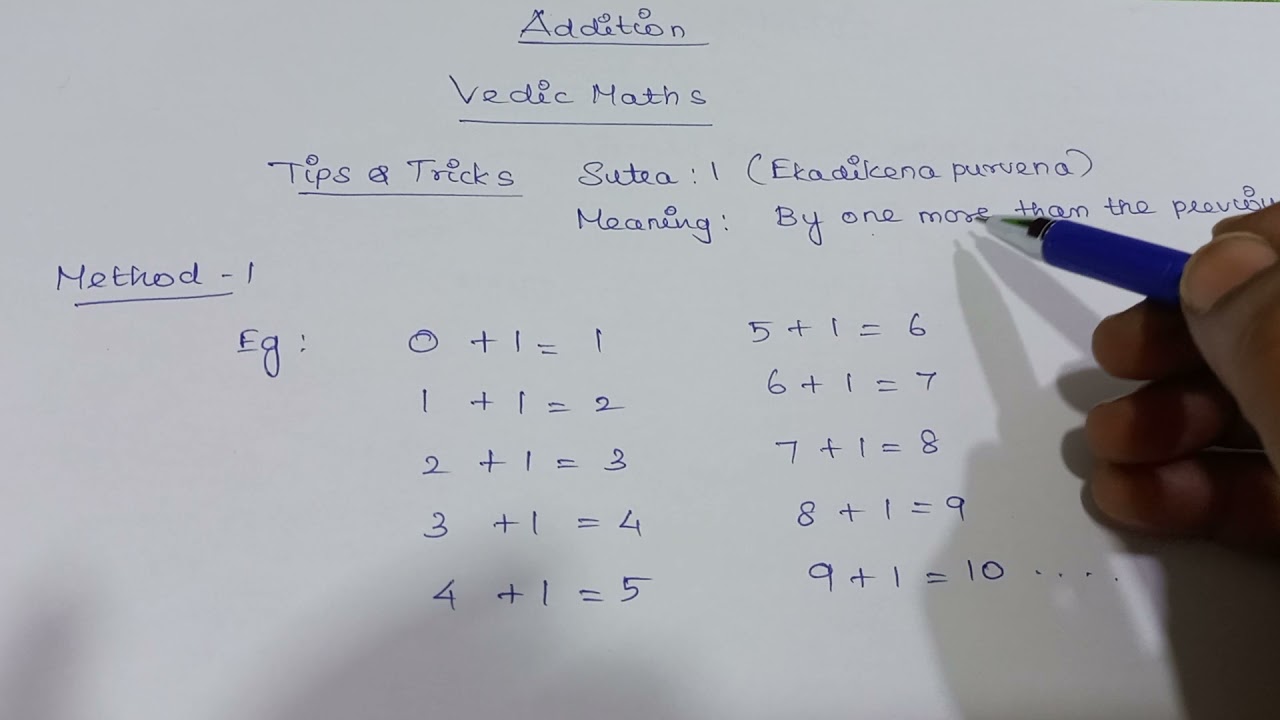 Addition
Vedic Maths
Tips & Tricks Sutra : 1 (Ekadikena purvena)
Meaning : By one more than the previou
Method - 1
Eg : 0 + 1 = 1 5 + 1 = 6
1 + 1 = 2 6 + 1 = 7
2 + 1 = 3 7 + 1 = 8
3 + 1 = 4 8 + 1 = 9
4 + 1 = 5 9 + 1 = 10 . . . .